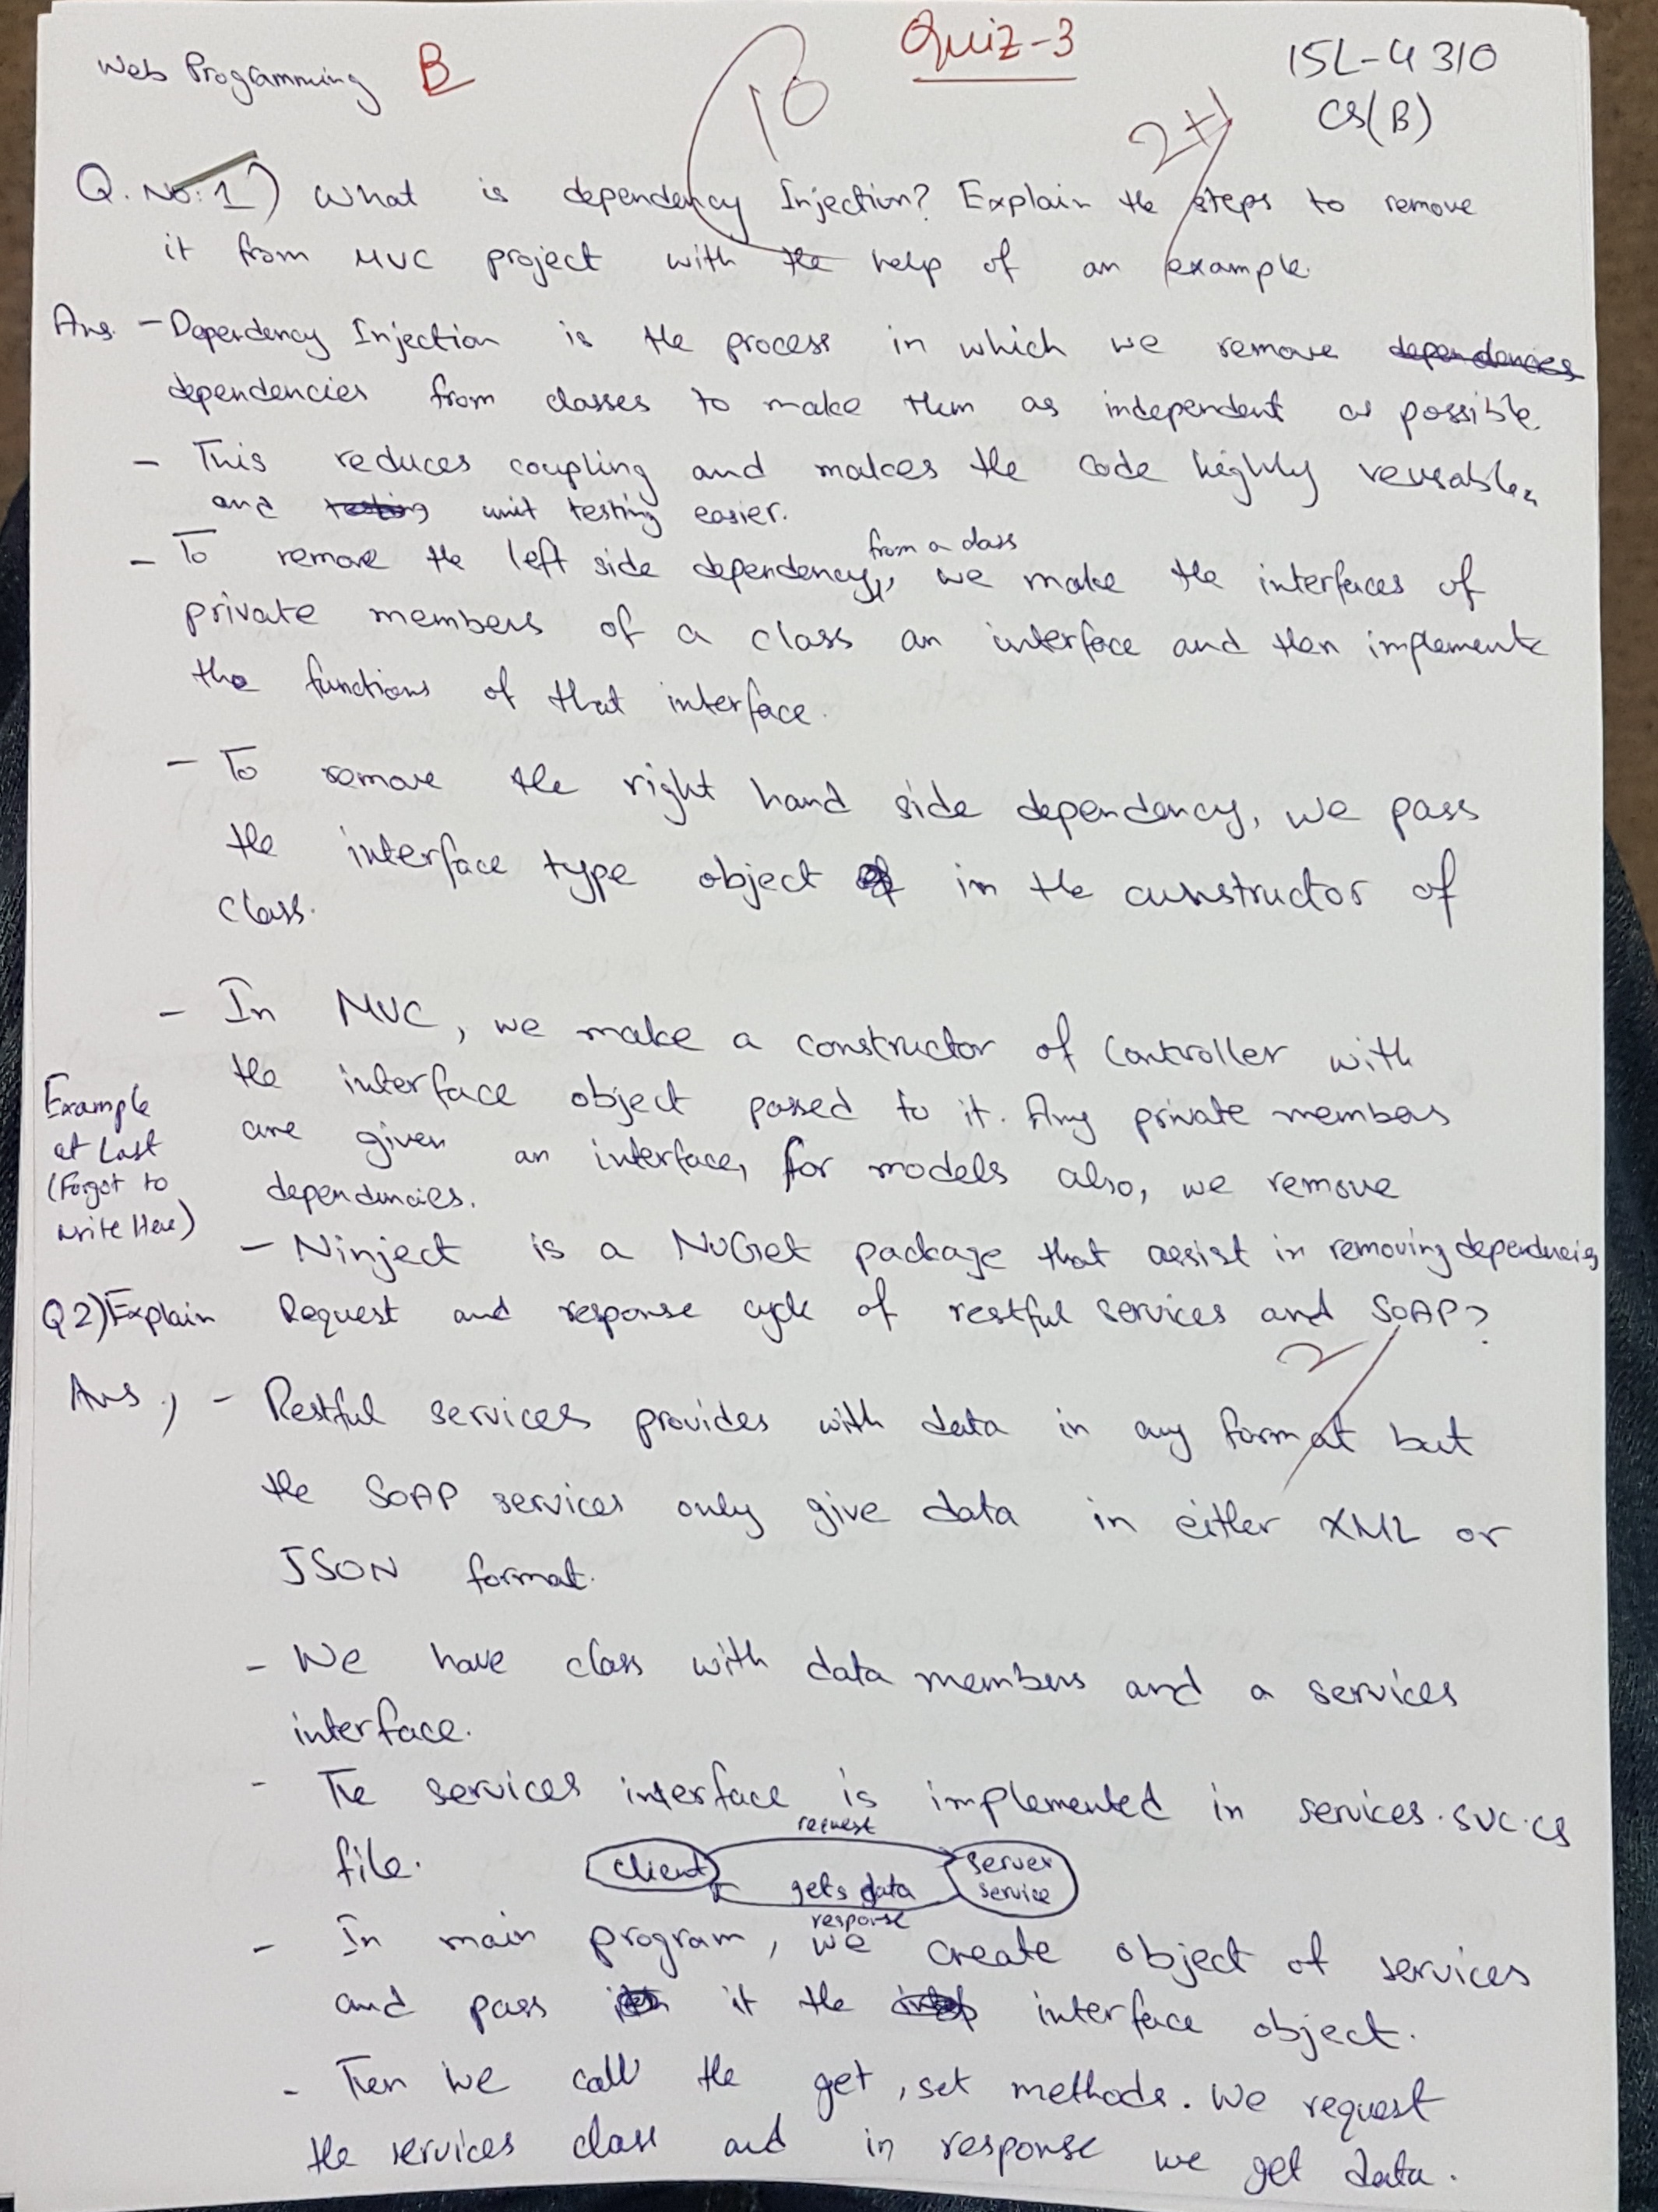 Quiz-3
Web Programming B
10
15L-4310
CS(B)
2+1
Q. No: 1) What is dependency Injection? Explain the steps to remove
it from MVC project with the help of an example.
Ans. - Dependency Injection is the process in which we remove dependencies
dependencies from classes to make them as independent as possible.
- This reduces coupling and makes the code highly reusable,
and testing unit testing easier.
from a class
- To remove the left side dependency, we make the interfaces of
private members of a class an interface and then implement
the functions of that interface.
- To remove the right hand side dependency, we pass
the interface type object of in the constructor of
class.
- In MVC, we make a constructor of Controller with
the interface object passed to it. Any private members
are given an interface, for models also, we remove
dependencies.
Example
at Last
(Forgot to
write Here)
- Ninject is a NuGet package that assist in removing dependencies
Q2) Explain Request and response cycle of restful services and SOAP?
2
Ans, - Restful services provides with data in any format but
the SOAP services only give data in either XML or
JSON format.
- We have class with data members and a services
interface.
- The services interface is implemented in services.svc.cs
file.
request
client gets data server
service
response
- In main program, we create object of services
and pass it the interface object.
- Then we call the get, set methods. We request
the services class and in response we get data.